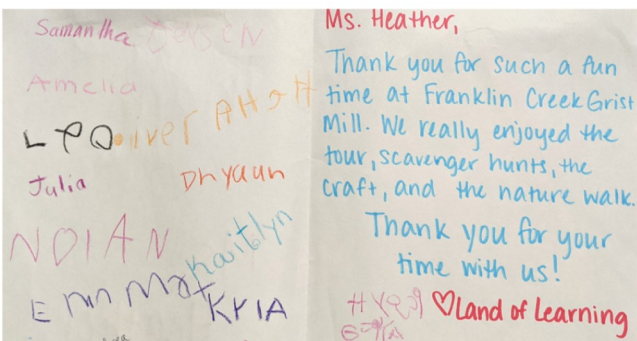 Samantha
Amelia
Julia
Dhyaun
NOIAN
Kaitlyn
KYIA
Ms. Heather,
Thank you for such a fun
time at Franklin Creek Grist
Mill. We really enjoyed the
tour, scavenger hunts, the
craft, and the nature walk.
Thank you for your
time with us!
♡Land of Learning